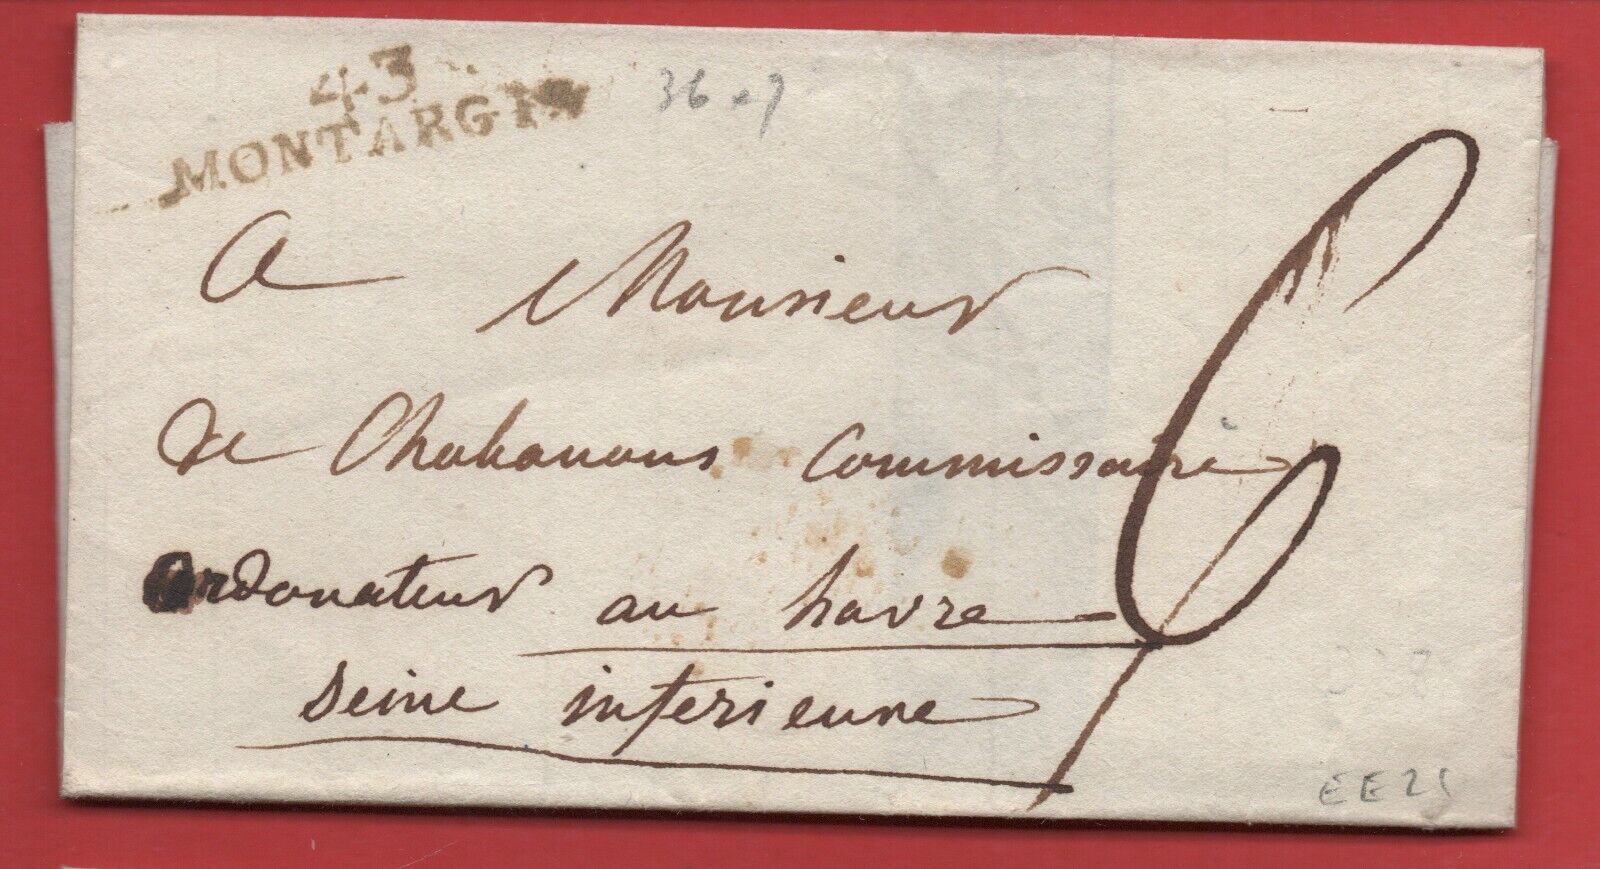 43
MONTARGIS
36
A Monsieur
de Chabanons Commissaire
ordonateur au havre
Seine inferieure
6
EE21